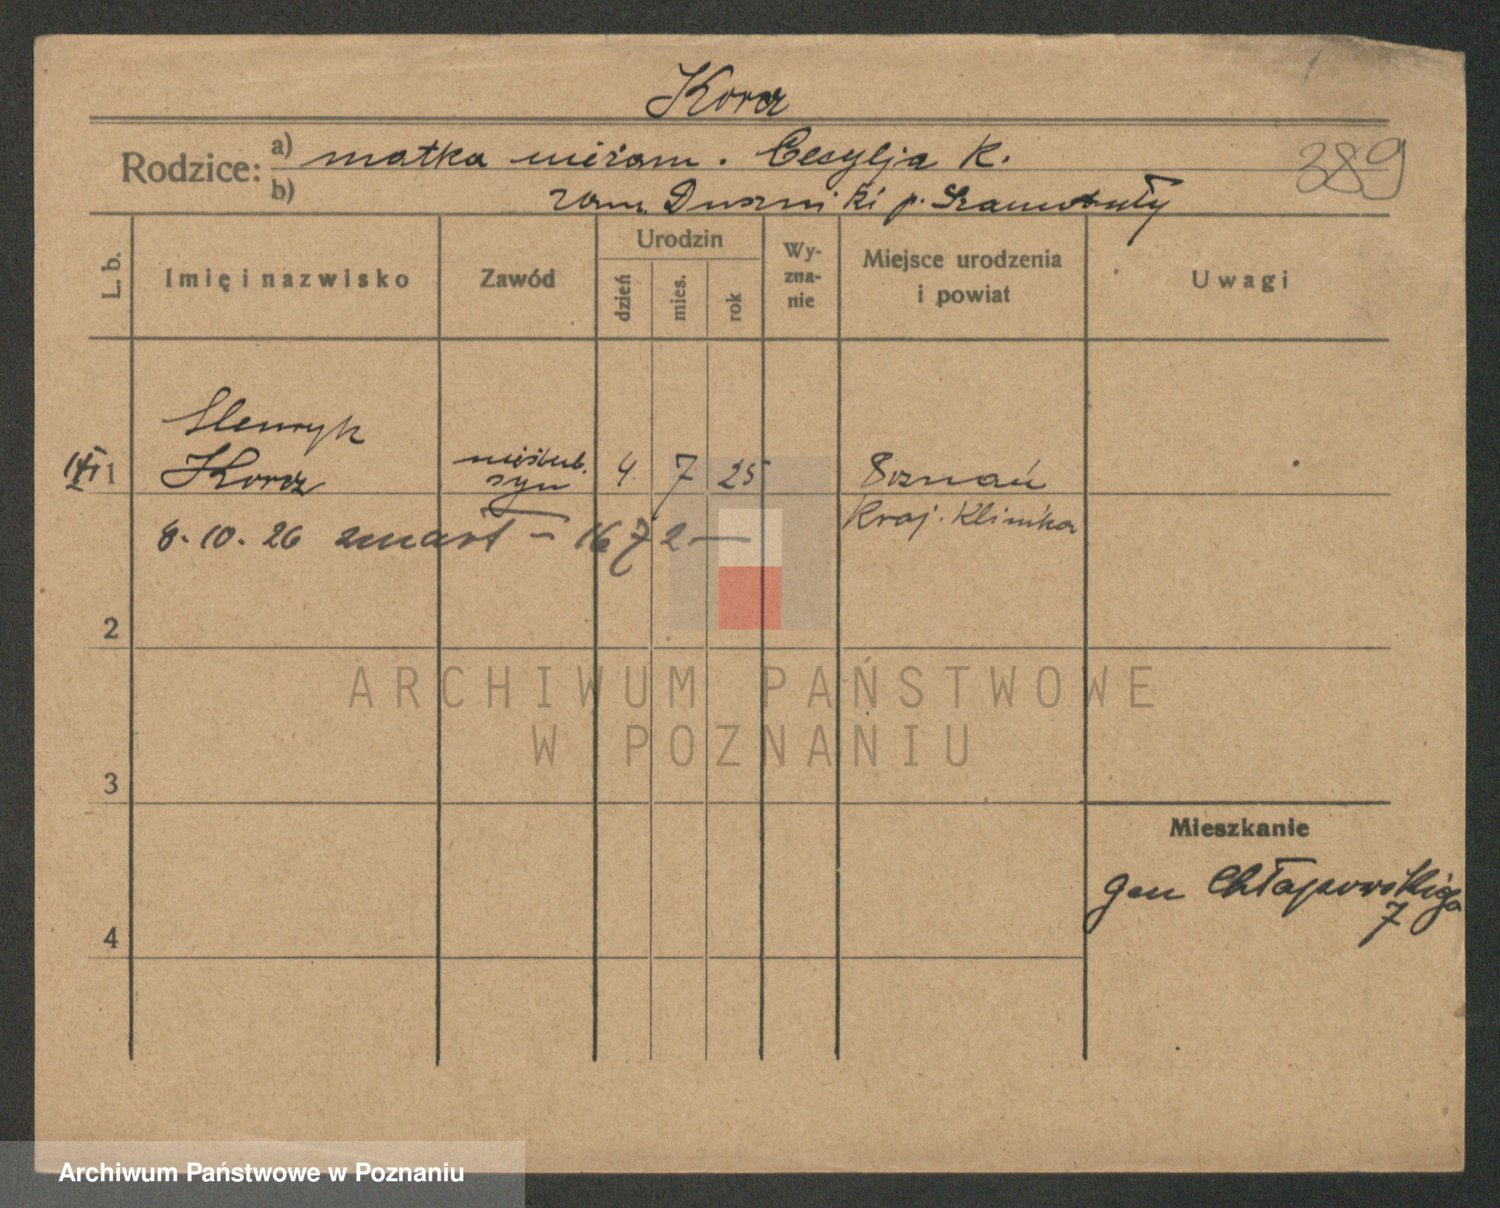 Korcz
Rodzice: a) matka niezam. Cecylja K.
389
b) zam. Duszniki p. Szamotuły
L. b.
Imię i nazwisko
Zawód
Urodzin
dzień
mies.
rok
Wy-
zna-
nie
Miejsce urodzenia
i powiat
Uwagi
1
Henryk
Korcz
nieślub.
syn
4 7 25
Poznań
Kraj. Klinika
8. 10. 26 zmarł – 1672 —
2
ARCHIWUM PAŃSTWOWE
W POZNANIU
3
Mieszkanie
gen Chłapowskiego
7
4
Archiwum Państwowe w Poznaniu